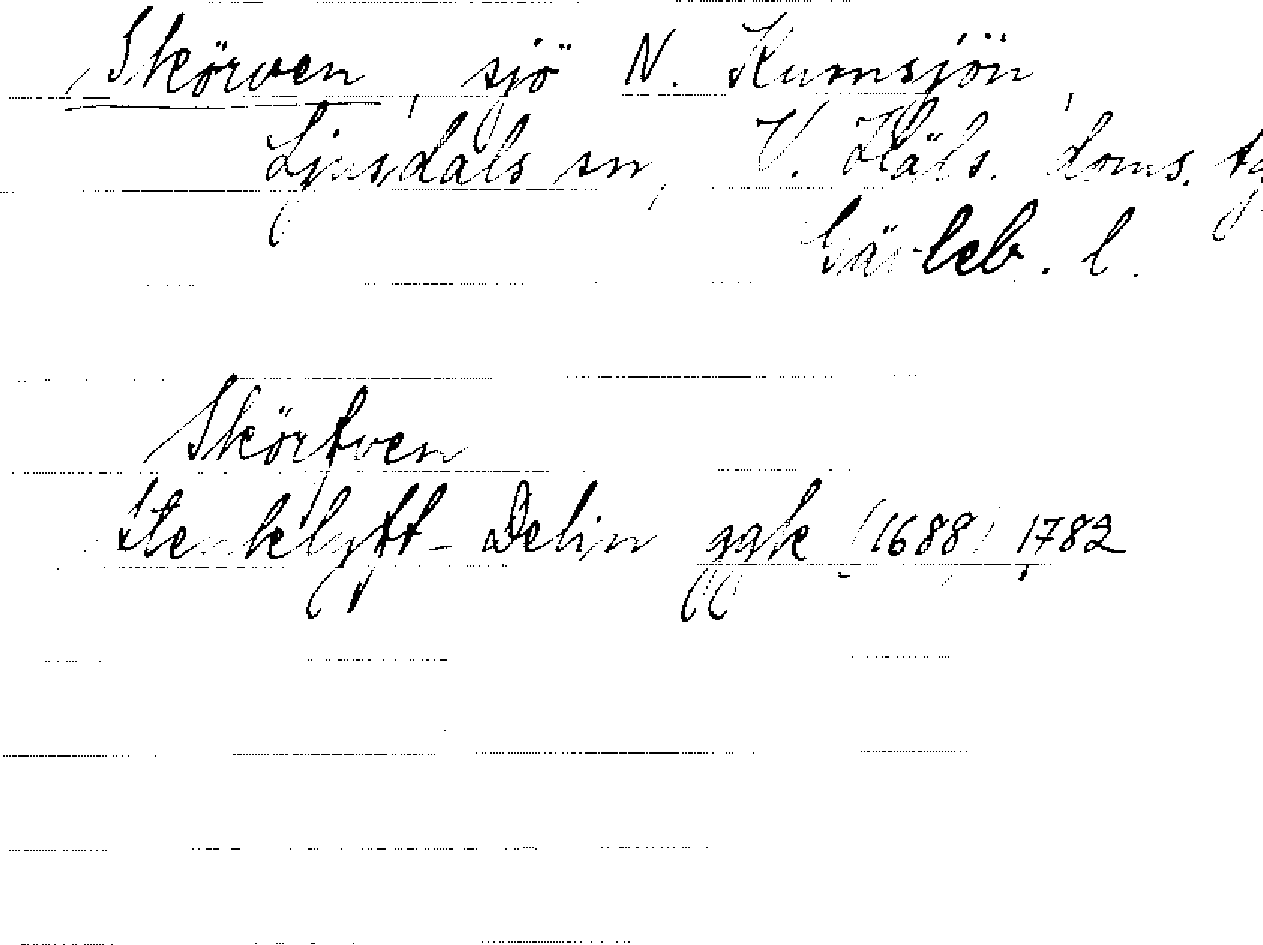 Skörven, sjö N. Kumsjön,
Ljusdals sn, V. Häls. doms.
Gävleb. l.
Skörfven
Stenklyft - Delin ggk (1688) 1782